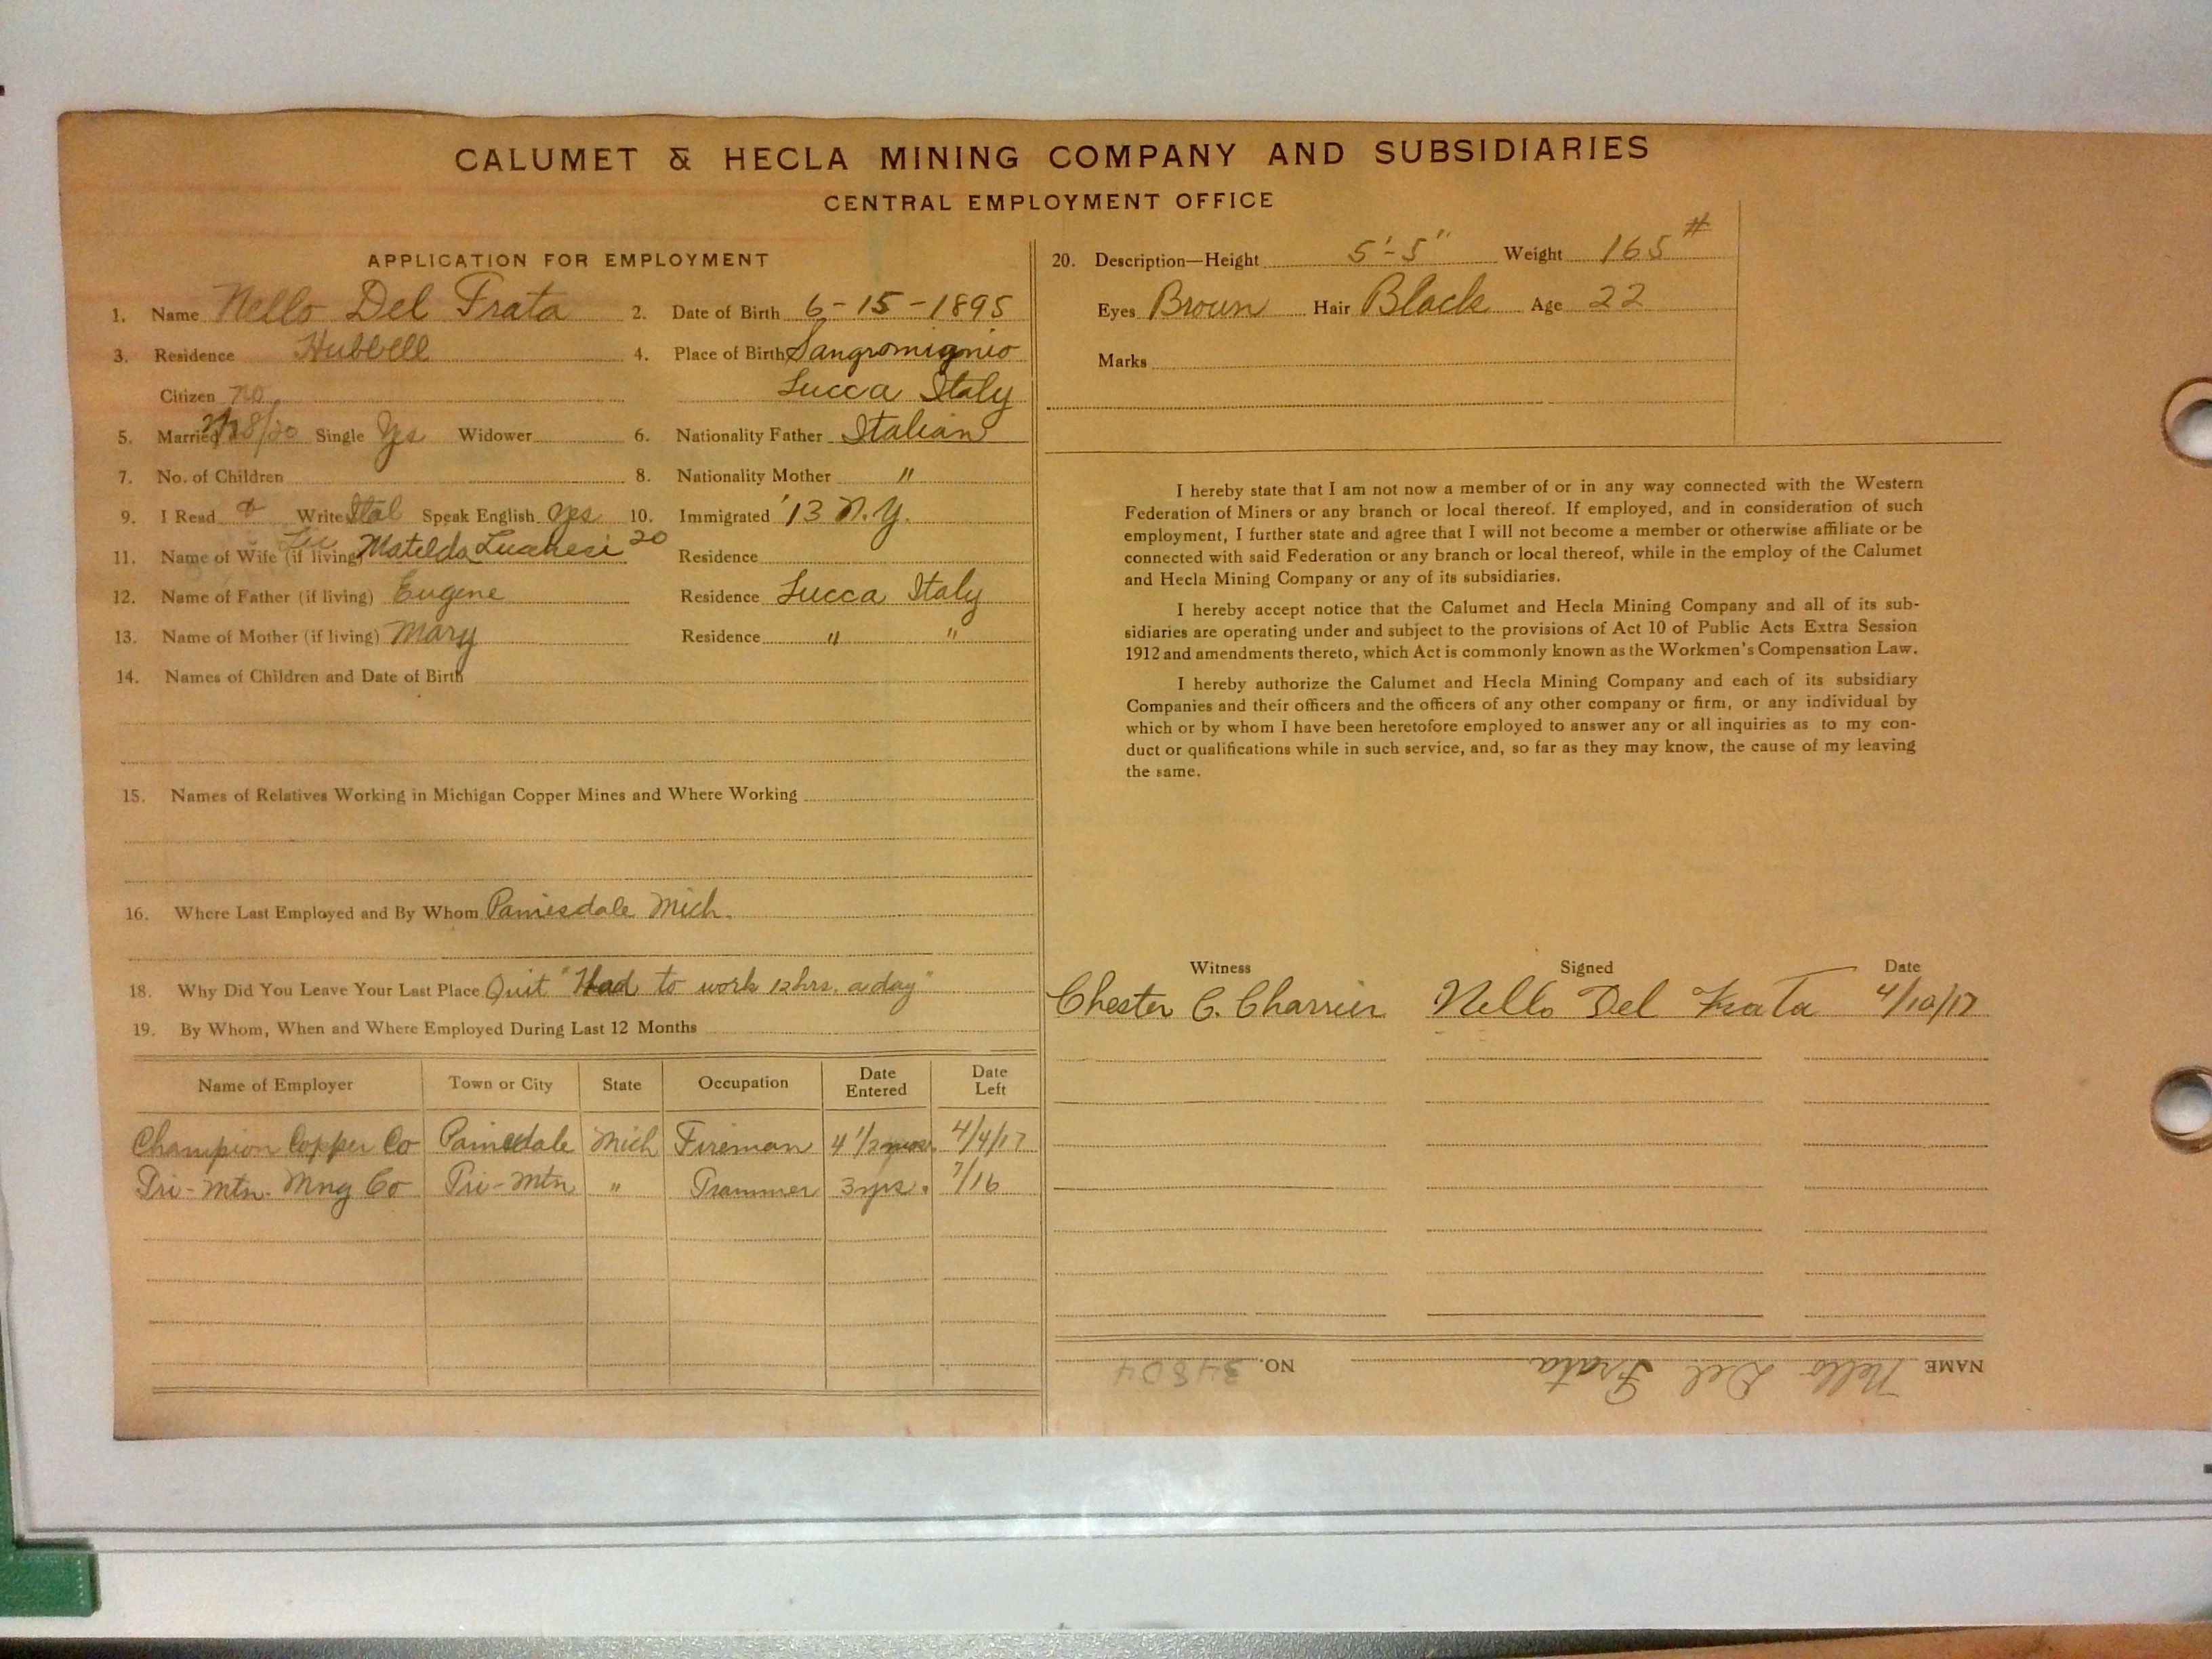 CALUMET & HECLA MINING COMPANY AND SUBSIDIARIES
CENTRAL EMPLOYMENT OFFICE
APPLICATION FOR EMPLOYMENT
1. Name Nello Del Frata 2. Date of Birth 6-15-1895
3. Residence Hubbell 4. Place of Birth Sangromignio
Citizen no Lucca Italy
5. Married /28/20 Single Yes Widower 6. Nationality Father Italian
7. No. of Children 8. Nationality Mother "
9. I Read & Write Ital Speak English Yes 10. Immigrated '13 N.Y.
11. Name of Wife (if living) Matilda Luchesi 20 Residence
12. Name of Father (if living) Eugene Residence Lucca Italy
13. Name of Mother (if living) Mary Residence " "
14. Names of Children and Date of Birth
15. Names of Relatives Working in Michigan Copper Mines and Where Working
16. Where Last Employed and By Whom Painesdale Mich.
18. Why Did You Leave Your Last Place Quit "Had to work 12 hrs. a day"
19. By Whom, When and Where Employed During Last 12 Months
Name of Employer Town or City State Occupation Date Entered Date Left
Champion Copper Co Painesdale Mich Fireman 4 1/2 mos. 4/4/17
Tri-Mtn. Mng Co Tri-Mtn " Trammer 3 yrs. 7/16
20. Description—Height 5'-5" Weight 165 #
Eyes Brown Hair Black Age 22
Marks
I hereby state that I am not now a member of or in any way connected with the Western
Federation of Miners or any branch or local thereof. If employed, and in consideration of such
employment, I further state and agree that I will not become a member or otherwise affiliate or be
connected with said Federation or any branch or local thereof, while in the employ of the Calumet
and Hecla Mining Company or any of its subsidiaries.
I hereby accept notice that the Calumet and Hecla Mining Company and all of its sub-
sidiaries are operating under and subject to the provisions of Act 10 of Public Acts Extra Session
1912 and amendments thereto, which Act is commonly known as the Workmen's Compensation Law.
I hereby authorize the Calumet and Hecla Mining Company and each of its subsidiary
Companies and their officers and the officers of any other company or firm, or any individual by
which or by whom I have been heretofore employed to answer any or all inquiries as to my con-
duct or qualifications while in such service, and, so far as they may know, the cause of my leaving
the same.
Witness Signed Date
Chester C. Charrier Nello Del Frata 4/10/17
NAME Nello Del Frata NO. 34804